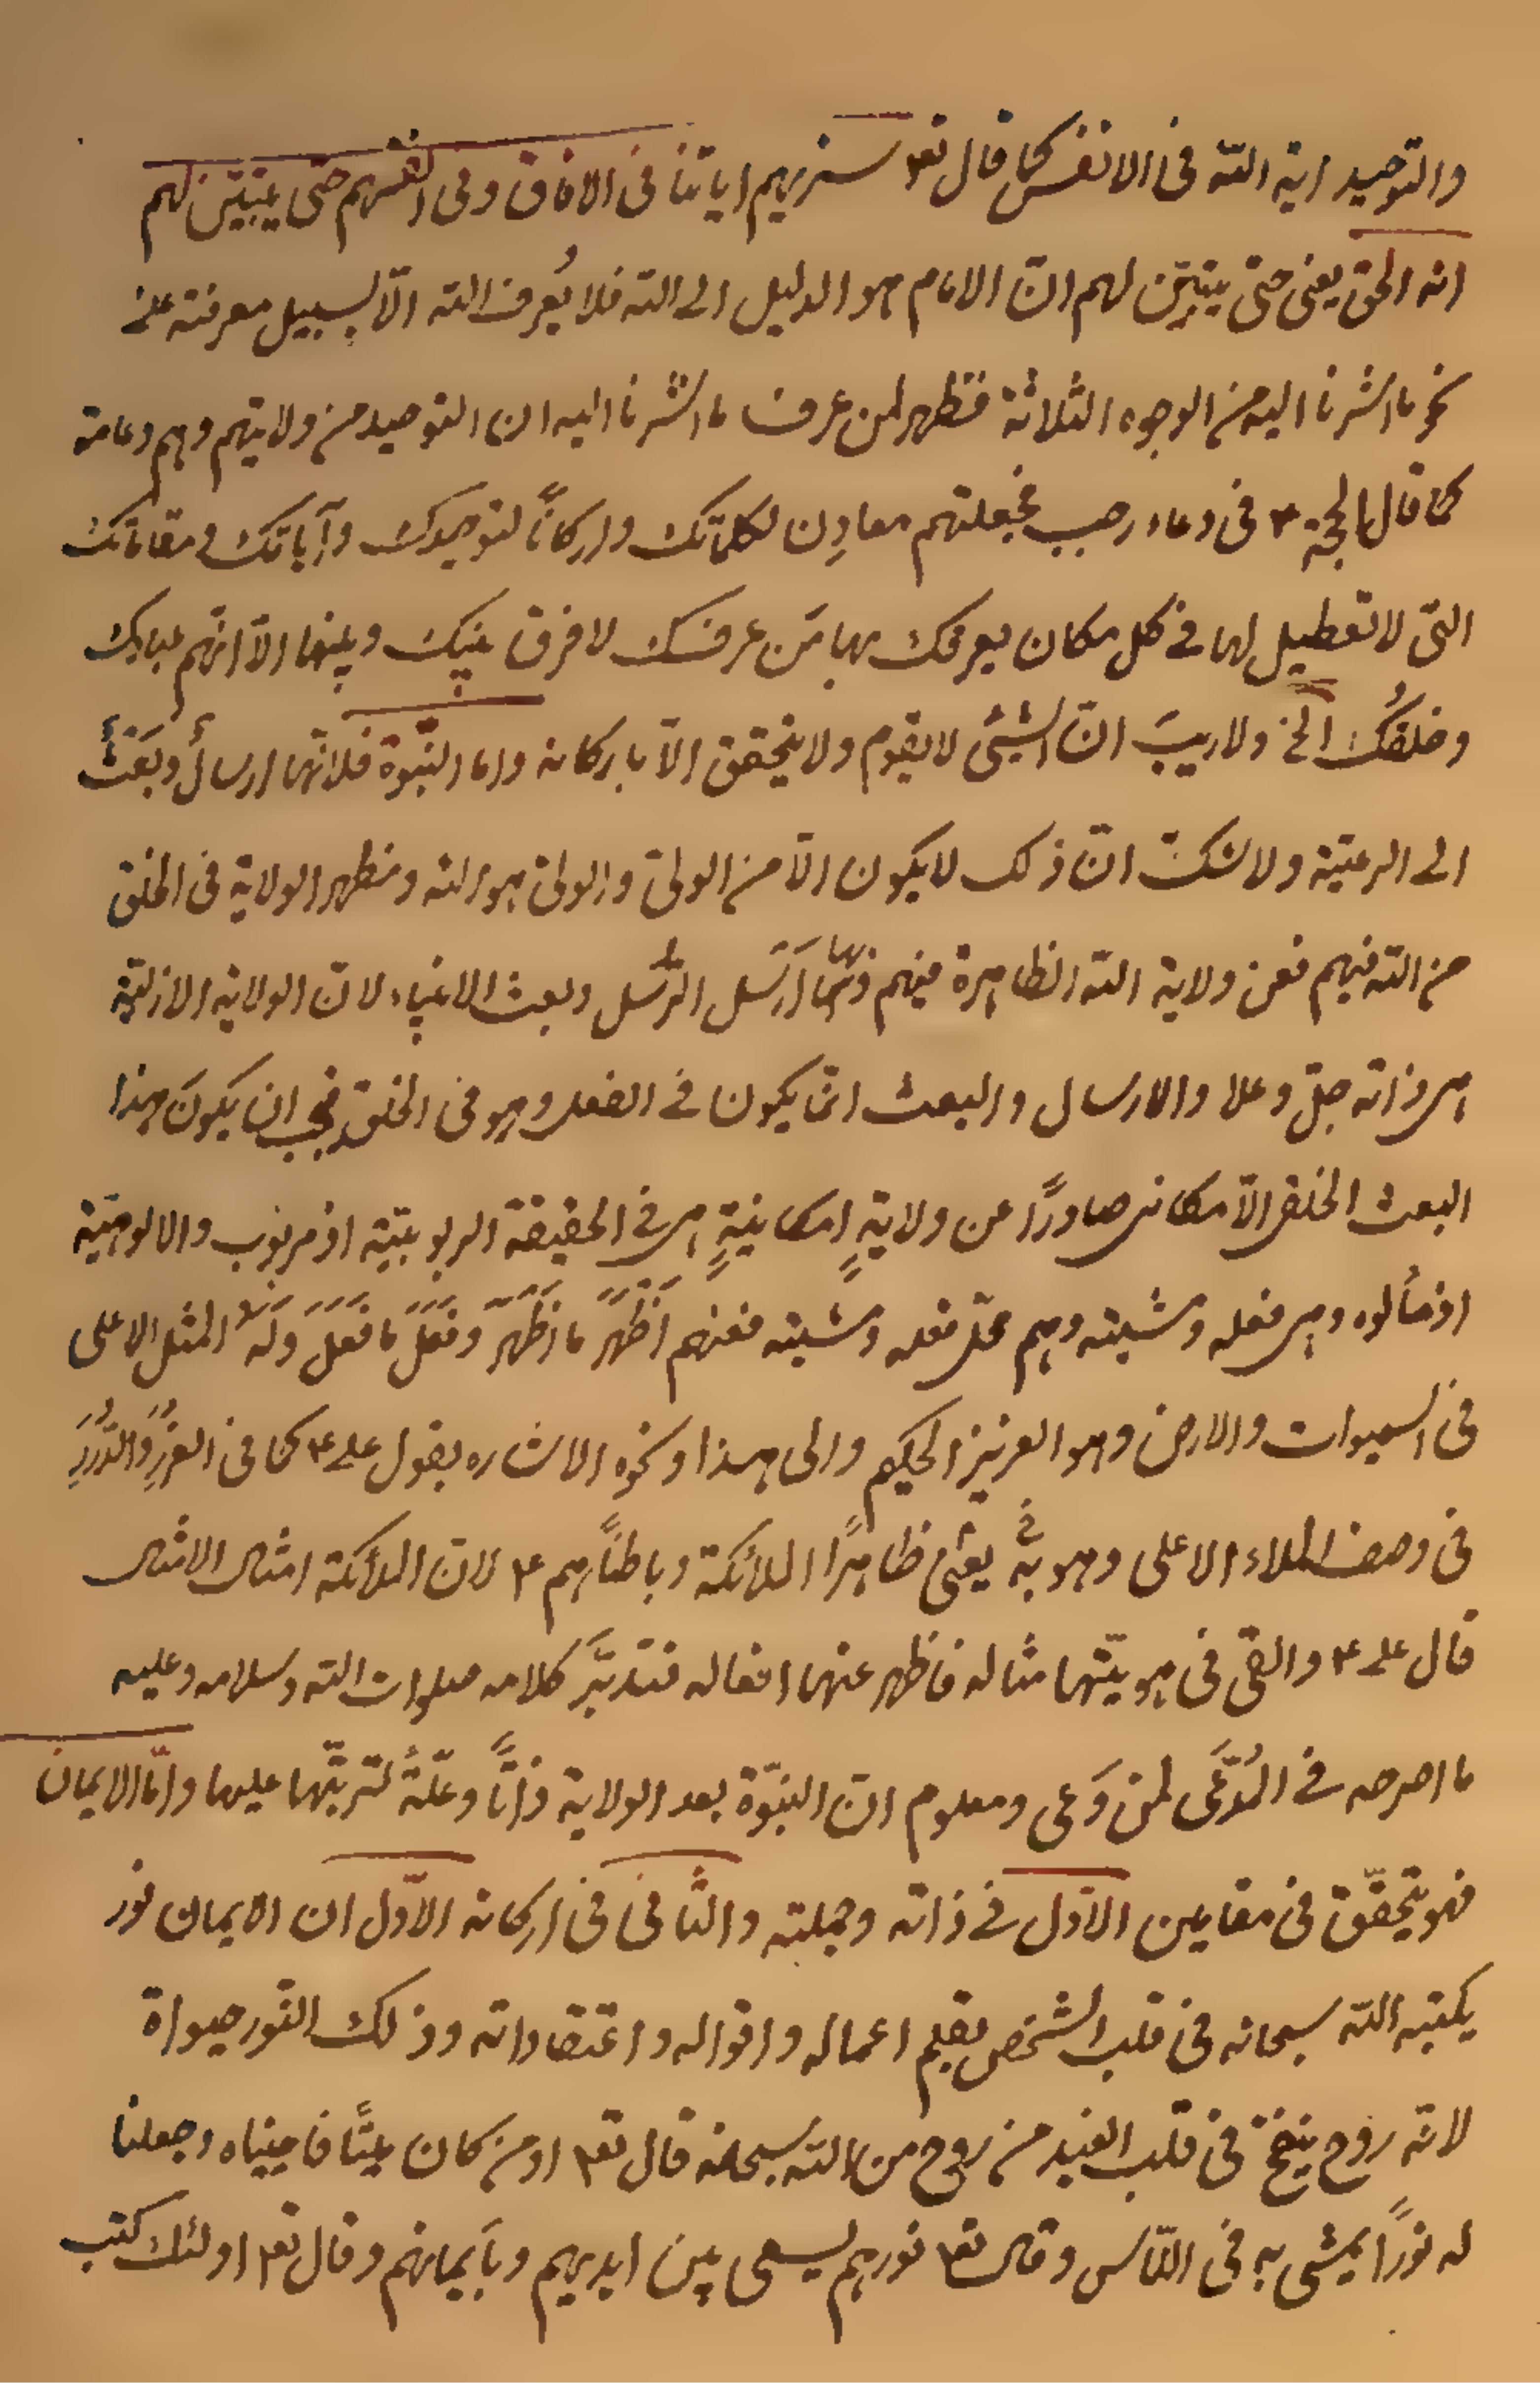 والتوحيد اية اللّه فى الانفس كما قال تعو سنريهم اياتنا فى الافاق وفى انفسهم حتى يتبيّن لهم
انه الحق يعنى حتى يتبيّن لهم انّ الامام هو الدليل الى اللّه فلا يُعرف اللّه الّا بسبيل معرفته على
نحو ما اشرنا اليه من الوجوه الثلاثة فظهر لمن عرف ما اشرنا اليه ان التوحيد من ولايتهم وهم دعامته
كما قال الحجة ع فى دعاء رجب فجعلتهم معادِن لكلماتك واركانًا لتوحيدك وآياتك ومقاماتك
التى لا تعطيل لها فى كل مكان يعرفك بها مَن عرفك لا فرق بينك وبينها الّا انهم عبادك
وخلقُك الخ ولا ريبَ انّ الشيئ لا يقوم ولا يتحقق الّا باركانه واما النبّوة فلانّها ارسالٌ وبَعَثٌ
الى الرعيّة ولا شكّ انّ ذلك لا يكون الّا من الولىّ والولىّ هو اللّه ومظهر الولاية فى الخلق
من اللّه فيهم فعن ولاية اللّه الظاهرة فيهم وبها ارَسَل الرُّسل وبعث الانبياء لانّ الولاية الازليّة
هى ذاته جلّ وعلا والارسال والبعث انّما يكون فى الفعل وهو فى الخلق فيجب ان يكونَ هذا
البعث الخلقى الامكانى صادرًا عن ولايةٍ امكانيةٍ هى فى الحقيقة الربوبيّة اذ مربوب والالوهيّة
اذ مألوه وهى فعله ومشيته وهم محلّ فعله ومشيته فعنهم اَظَهَرَ ما اَظَهَرَ وفَعَلَ ما فَعَلَ وَلَهُ المثل الاعلى
فى السموات والارض وهو العزيز الحكيم والى هذا ونحوه الاشاره بقول على ع كما فى الغررِ والدُّررِ
فى وصف الملاء الاعلى وهو يعنى ظاهرًا الملائكة وباطنًا هم ع لانّ الملائكة امثال الامثال
قال على ع والقى فى هويّتها مثاله فاظهر عنها افعاله فتدبّرَ كلامه صلوات اللّه وسلامه وعليه
ما اصرحه فى المُدّعَى لمن وَعى ومعلوم انّ النبّوة بعد الولاية ذاتًا وعلّةً لتربّتها عليها وامّا الايمان
فهو يتحقّق فى مقامين الاوّل فى ذاته وجملته والثانى فى اركانه الاوّل ان الايمان نور
يكتبه اللّه سبحانه فى قلب الشخص بقلم اعماله واقواله واعتقاداته وذلك النّور حيواة
لانّه روح ينفخ فى قلب العبد من روح من اللّه سبحانه قال تعا اومن كان ميتًا فاحييناه وجعلنا
له نورًا يمشى به فى النّاس وقال تعا نورهم يسعى بين ايديهم وبأيمانهم وقال تعا اولئك كتب